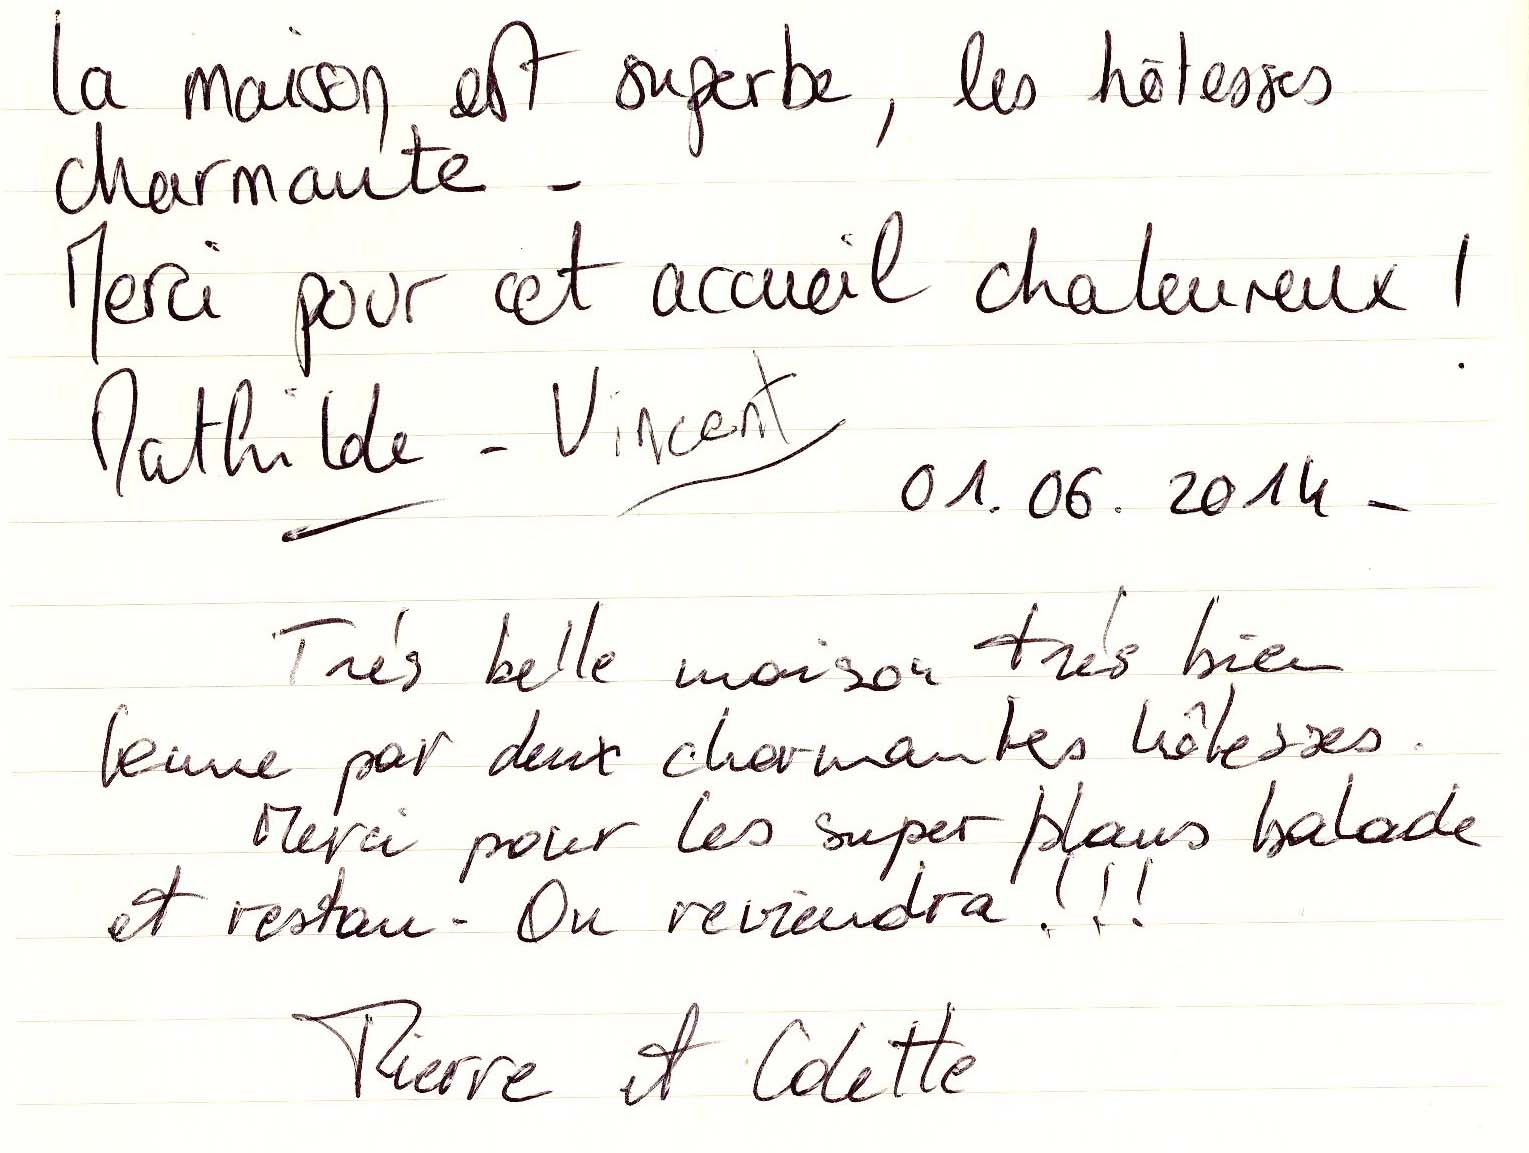 La maison est superbe, les hôtesses
charmante -
Merci pour cet accueil chaleureux !
Mathilde - Vincent
01.06.2014 -
Trés belle maison trés bien
tenue par deux charmantes hôtesses.
Merci pour les super plans balade
et restau - On reviendra !!!
Pierre et Colette